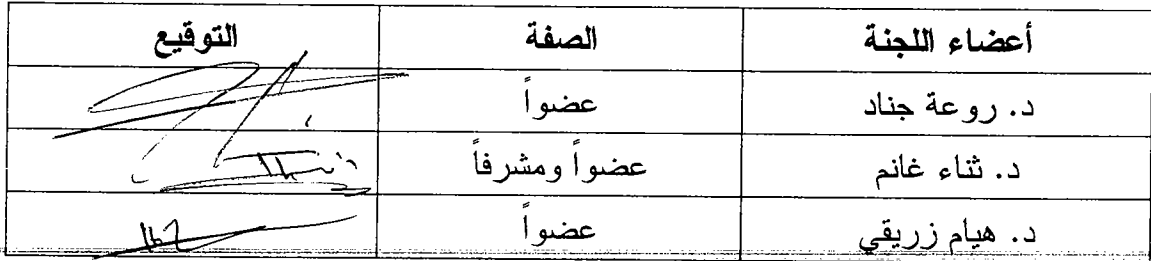 أعضاء اللجنة الصفة التوقيع
د. روعة جناد عضواً
د. ثناء غانم عضواً ومشرفاً
د. هيام زريقي عضواً